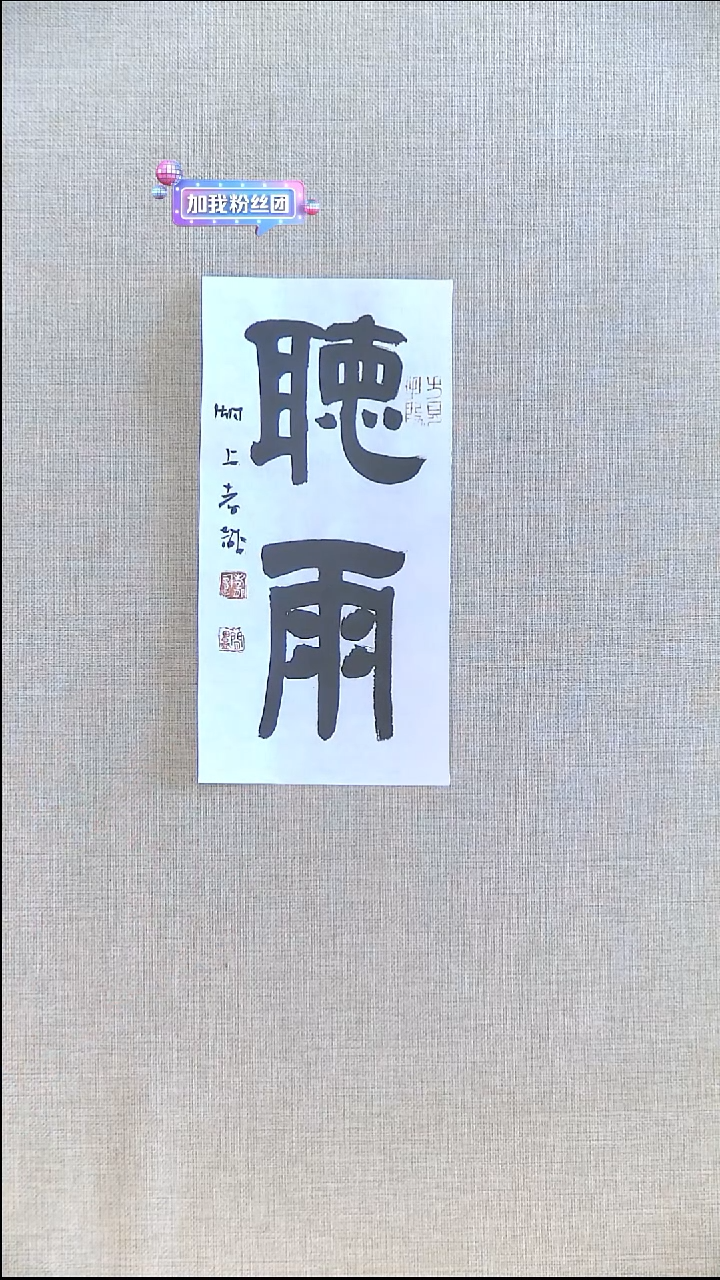 加我粉丝团
聽雨
湖上老